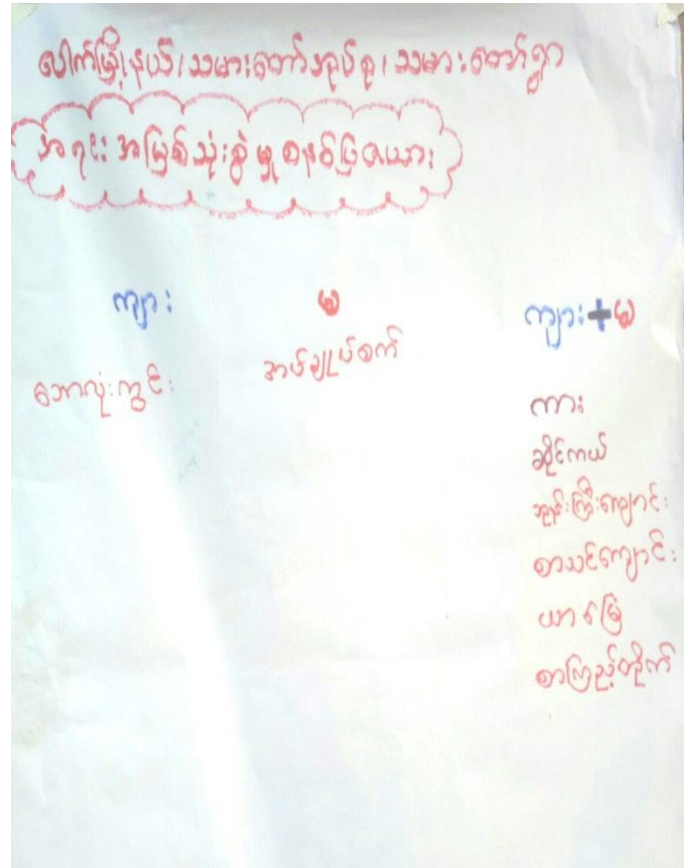 ပေါက်မြို့နယ်၊ သမားတော်အုပ်စု၊ သမားတော်ရွာ
အရင်းအမြစ်သုံးစွဲမှုစနစ်ပြဇယား
ကျား
မ
ကျား+မ
ဘောလုံးကွင်း
အပ်ချုပ်စက်
ကား
ဆိုင်ကယ်
ဘုန်းကြီးကျောင်း
စာသင်ကျောင်း
ယာမြေ
စာကြည့်တိုက်